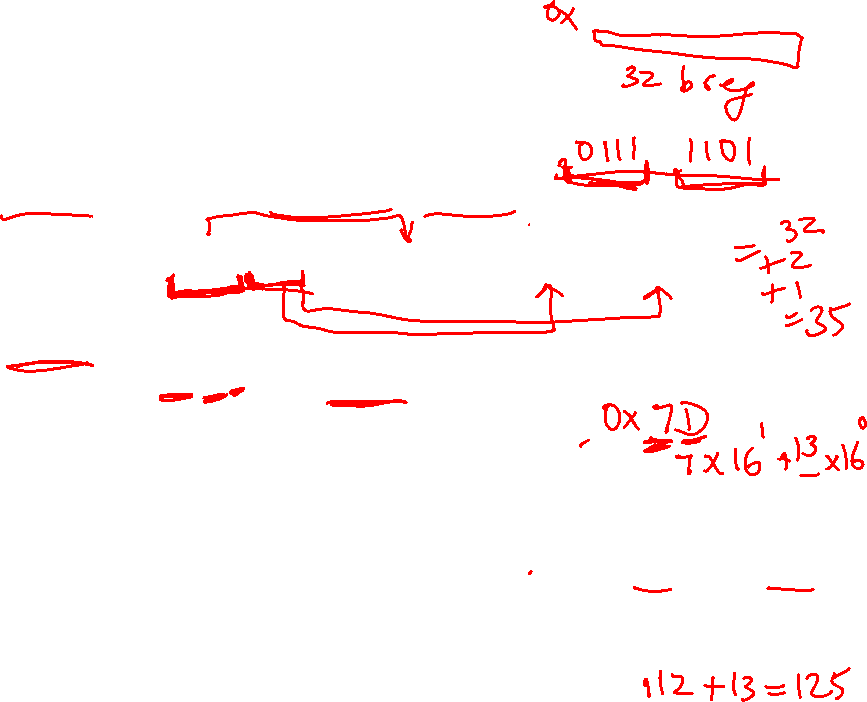 0x
32
0111 1101
= 32
+2
+1
=35
0x 7D
7x16¹+13x16⁰
112+13=125